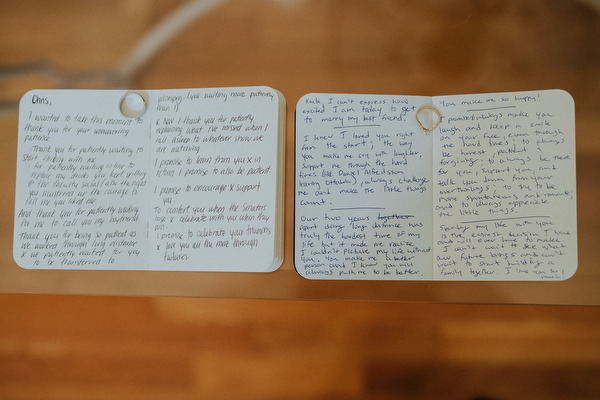 Chris,
I wanted to take this moment to
thank you for your unwavering
patience
Thank you for patiently waiting to
start dating with me
For patiently waiting in line to
replace the drinks you kept spilling
& for finally
you mustered up the courage to
tell me you liked me.
And thank you for patiently waiting
for me to call you my boyfriend
Thank you for being so patient as
we worked through long distance
& we patiently waited for you
to be transferred to
Winnipeg. (you waiting more patiently
than I)
& now I thank you for patiently
explaining what I've missed when I
fall asleep to whatever show we
are watching
I promise to learn from you & in
return I promise to also be patient
I promise to encourage & support
you
To comfort you when the Senators
lose & celebrate with you when they
win.
I promise to celebrate your triumphs
& love you all the more through
failures
I can't express how
excited I am today to get
to marry my best friend.
I knew I loved you right
from the start; the way
you make me cry with laughter,
support me through the hard
times like Daniel Alfredsson
leaving Ottawa, always challenge
me and make the little things
count.
Our two years together
apart doing long distance was
truly the hardest time of my
life but it made me realize
I couldn't picture my life without
you. You make me a better
person and I know you will
always push me to be better.
You make me so happy!
I promise to always make you
laugh and keep a smile
on your face, even through
the hard times; to always
be honest, patient,
forgiving; to always be there
for you, support you, and
talk you down from your
to try to be
more spontaneous and
and to always appreciate
the little things.
Spending my life with you
is the easiest decision I have
and will ever have to make.
I can't wait to see what
our future brings and can't
wait to start building a
family together. I love you so
much!